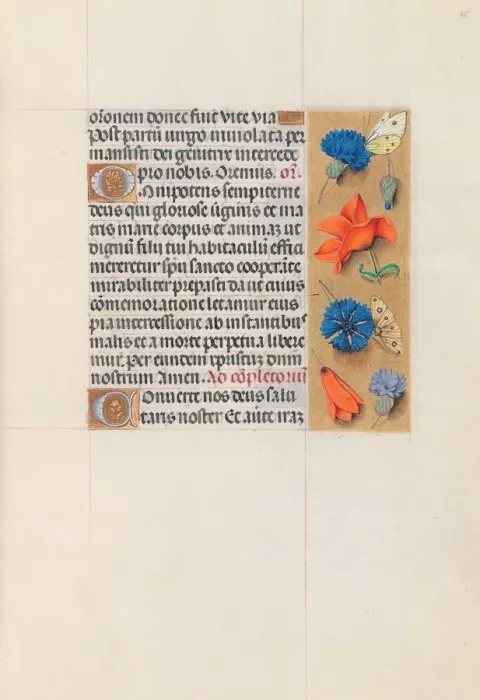 oronem donec fuit vite via
Post partū uirgo inuiolata per
mansisti dei genitrix intercede
pro nobis. Oremus. or.
Omnipotens sempiterne
deus qui gloriose uirginis et ma
tris marie corpus et animaz ut
dignū filii tui habitaculū effici
mereretur spū sancto cooperāte
mirabiliter preparasti da ut cuius
cōmemoratione letamur eius
pia intercessione ab instantibus
malis et a morte perpetua libere
mur. Per eundem dnm
nostrum Amen. Ad cōpletoriū
Conuerte nos deus salu
taris noster Et auerte iraz